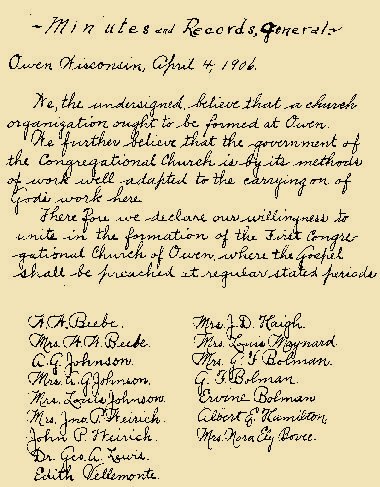 ~ Minutes and Records, General ~
Owen Wisconsin, April 4, 1906.
We, the undersigned, believe that a church
organization ought to be formed at Owen.
We further believe that the government of
the Congregational Church is by its methods
of work well adapted to the carrying on of
Gods work here
There fore we declare our willingness to
unite in the formation of the First Congre-
gational Church of Owen, where the Gospel
shall be preached at regular stated periods
H. H. Beebe.
Mrs. H. H. Beebe.
A. G. Johnson.
Mrs. A. G. Johnson.
Mrs. Louis Johnson.
Mrs. Jno. P. Weirich.
John P. Weirich.
Dr. Geo. A. Lewis.
Edith Vellemonte.
Mrs. J. D. Haigh.
Mrs. Louis Maynard.
Mrs. G. F. Bolman.
G. F. Bolman.
Ervine Bolman
Albert E. Hamilton
Mrs. Nora Ely Bovee.